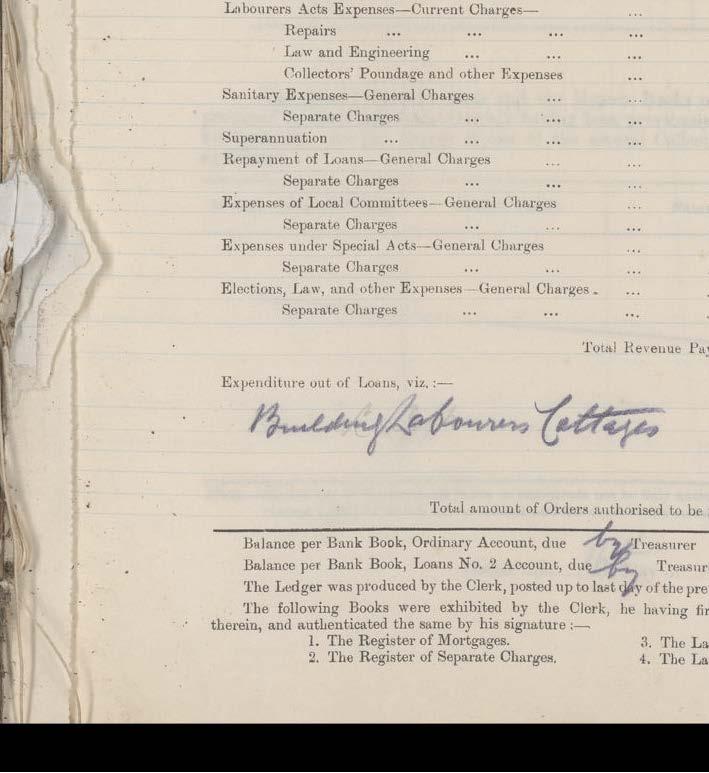 Labourers Acts Expenses—Current Charges— ...
Repairs ... ... ... ...
Law and Engineering ... ... ...
Collectors' Poundage and other Expenses ...
Sanitary Expenses—General Charges ... ...
Separate Charges ... ... ...
Superannuation ... ... ... ...
Repayment of Loans—General Charges ... ...
Separate Charges ... ... ...
Expenses of Local Committees—General Charges ...
Separate Charges ... ... ...
Expenses under Special Acts—General Charges ...
Separate Charges ... ... ...
Elections, Law, and other Expenses—General Charges ...
Separate Charges ... ... ...
Total Revenue Pay
Expenditure out of Loans, viz. :—
Building Labourers Cottages
Total amount of Orders authorised to be
Balance per Bank Book, Ordinary Account, due by Treasurer
Balance per Bank Book, Loans No. 2 Account, due by Treasur
The Ledger was produced by the Clerk, posted up to last day of the pre
The following Books were exhibited by the Clerk, he having fir
therein, and authenticated the same by his signature :—
1. The Register of Mortgages. 3. The La
2. The Register of Separate Charges. 4. The La